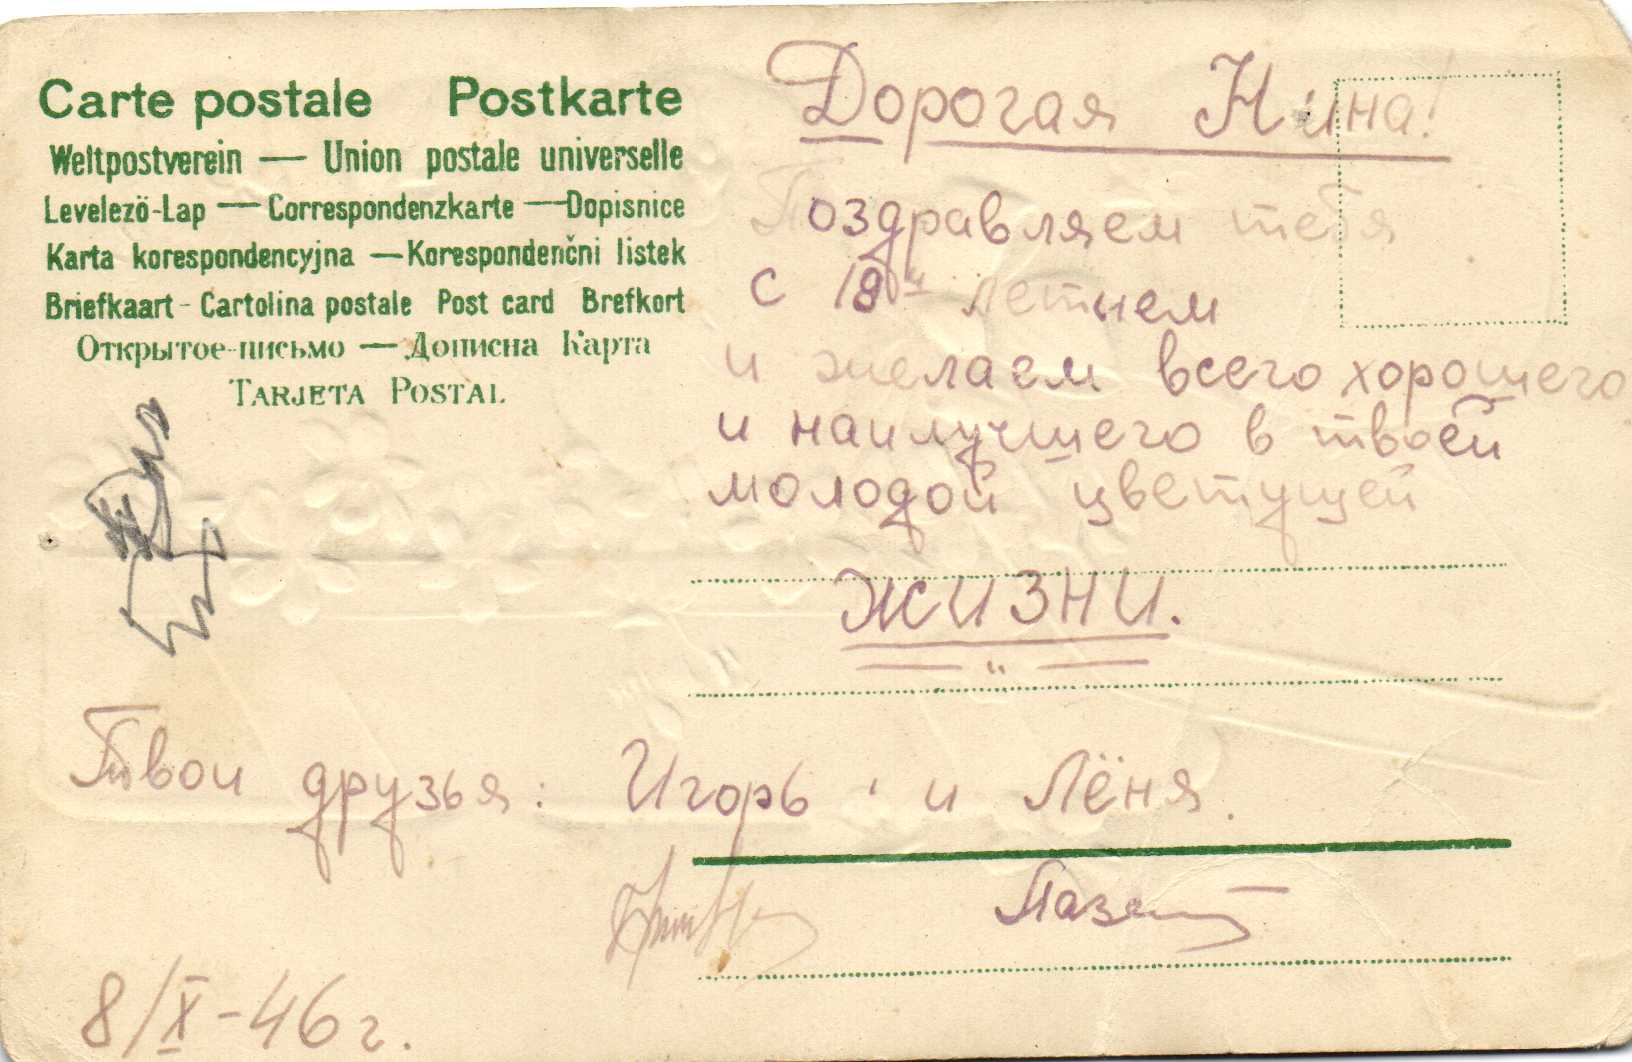 Carte postale Postkarte
Weltpostverein — Union postale universelle
Levelezö-Lap — Correspondenzkarte — Dopisnice
Karta korespondencyjna — Korespondenčni listek
Briefkaart - Cartolina postale Post card Brefkort
Открытое-письмо — Дописна Карта
TARJETA POSTAL
Дорогая Нина!
Поздравляем тебя
с 18ти летием
и желаем всего хорошего
и наилучшего в твоей
молодой цветущей
ЖИЗНИ.
Твои друзья: Игорь и Лёня.
8/X-46 г.